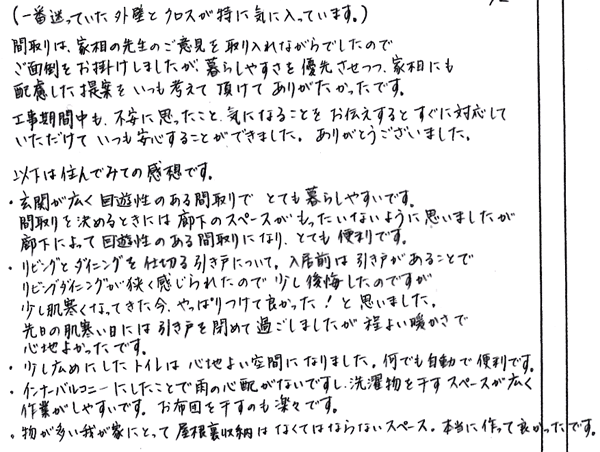 (一番迷っていた外壁とクロスが特に気に入っています。)
間取りは、家相の先生のご意見を取り入れながらでしたので
ご面倒をお掛けしましたが、暮らしやすさを優先させつつ、家相にも
配慮した提案をいつも考えて頂けてありがたかったです。
工事期間中も、不安に思ったこと、気になることをお伝えするとすぐに対応して
いただけていつも安心することができました。ありがとうございました。
以下は住んでみての感想です。
・玄関が広く回遊性のある間取りでとても暮らしやすいです。
間取りを決めるときには廊下のスペースがもったいないように思いましたが
廊下によって回遊性のある間取りになり、とても便利です。
・リビングとダイニングを仕切る引き戸について。入居前は引き戸があることで
リビングダイニングが狭く感じられたので少し後悔したのですが
少し肌寒くなってきた今、やっぱりつけて良かった!と思いました。
先日の肌寒い日には引き戸を閉めて過ごしましたが程よい暖かさで
心地よかったです。
・少し広めにしたトイレは心地よい空間になりました。何でも自動で便利です。
・インナーバルコニーにしたことで雨の心配がないですし、洗濯物を干すスペースが広く
作業がしやすいです。お布団を干すのも楽々です。
・物が多い我が家にとって屋根裏収納はなくてはならないスペース。本当に作って良かったです。